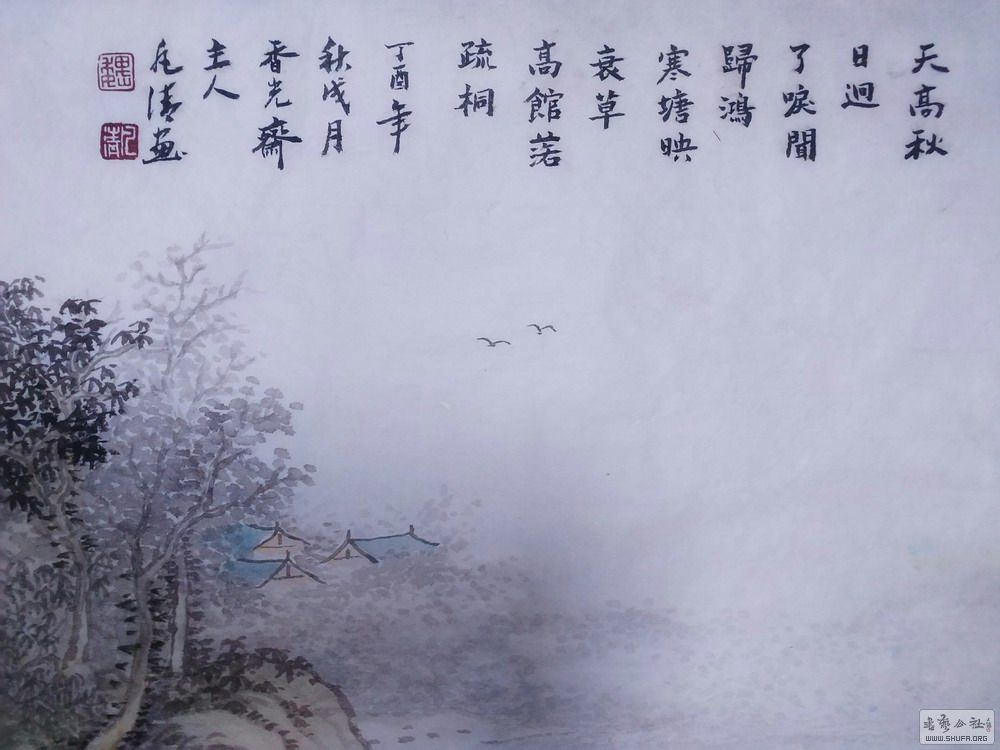 天高秋
日逈
了唳聞
歸鴻
寒塘映
衰草
高館落
疏桐
丁酉年
秋戌月
香光齋
主人
清畫
魏
书艺公社
WWW.SHUFA.ORG